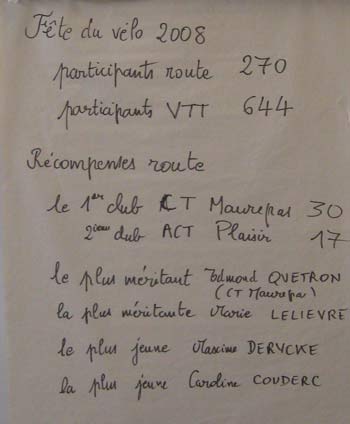 Fête du vélo 2008
participants route 270
participants VTT 644
Récompenses route
le 1er club CT Maurepas 30
2ième club ACT Plaisir 17
le plus méritant Edmond QUETRON
(CT Maurepas)
la plus méritante Marie LELIEVRE
le plus jeune Maxime DERYCKE
la plus jeune Caroline COUDERC